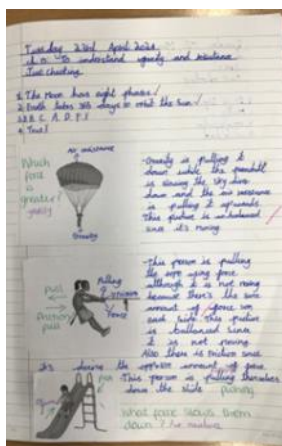 Tuesday 23rd April 2024
L.O. To understand gravity and resistance
Just checking
1. The Moon has eight phases ✓
2. Earth takes 365 days to orbit the Sun ✓
3. B. C. A. D. F. E
4. True
Air resistance
Which force is greater?
gravity
Gravity
- Gravity is pulling it
down while the
is slowing the sky diver
down and the air resistance
is pulling it upwards.
This picture is unbalanced
since it's moving.
Pulling
Force
pull
friction
pull
- This person is pulling
the rope using force
although it is not moving
because there's the same
amount of force on
each side. This picture
is ballanced since
it is not moving.
Also there is friction since
it's the opposite amount of force.
This person is pulling themselves
down the slide
pushing
What force slows them
down?